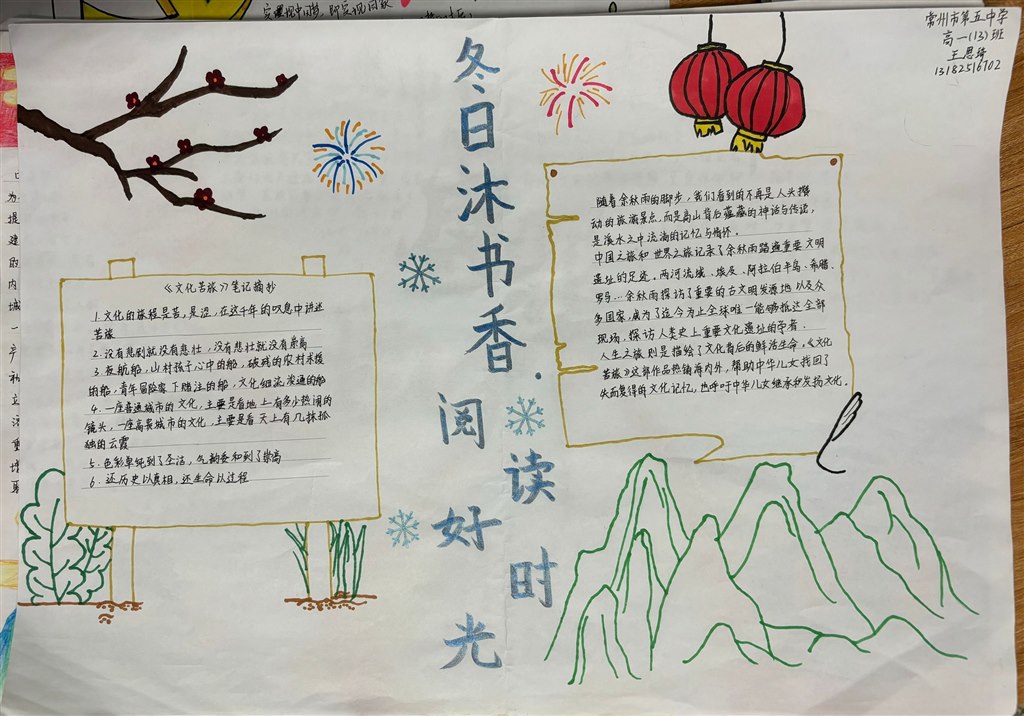 常州市第五中学
高一(13)班
王思琦
13182516702
冬日沐书香·
阅读好时光
《文化苦旅》笔记摘抄
1.文化的旅程是苦,是涩,在这千年的叹息中讲述
苦旅
2.没有悲剧就没有悲壮,没有悲壮就没有崇高
3.夜航船,山村孩子心中的船,破残的农村求援
的船,青年冒险家下赌注的船,文化细流浚通的船
4.一座普通城市的文化,主要是看地上有多少热闹的
镜头,一座高贵城市的文化,主要是看天上有几抹孤
独的云霞
5.色彩单纯到了圣洁,气韵委和到了崇高
6.还历史以真相,还生命以过程
随着余秋雨的脚步,我们看到的不再是人头攒
动的旅游景点,而是高山背后蕴藏的神话与传说,
是溪水之中流淌的记忆与情怀。
中国之旅和世界之旅记录了余秋雨踏遍重要文明
遗址的足迹。两河流域、埃及、阿拉伯半岛、希腊、
罗马…余秋雨探访了重要的古文明发源地以及众
多国家,成为了迄今为止全球唯一能够抵达全部
现场,探访人类史上重要文化遗址的学者.
人生之旅则是描绘了文化背后的鲜活生命。《文化
苦旅》这部作品热销海内外,帮助中华儿女找回了
失而复得的文化记忆,也呼吁中华儿女继承和发扬文化。
为
提
建
的
内
城
一